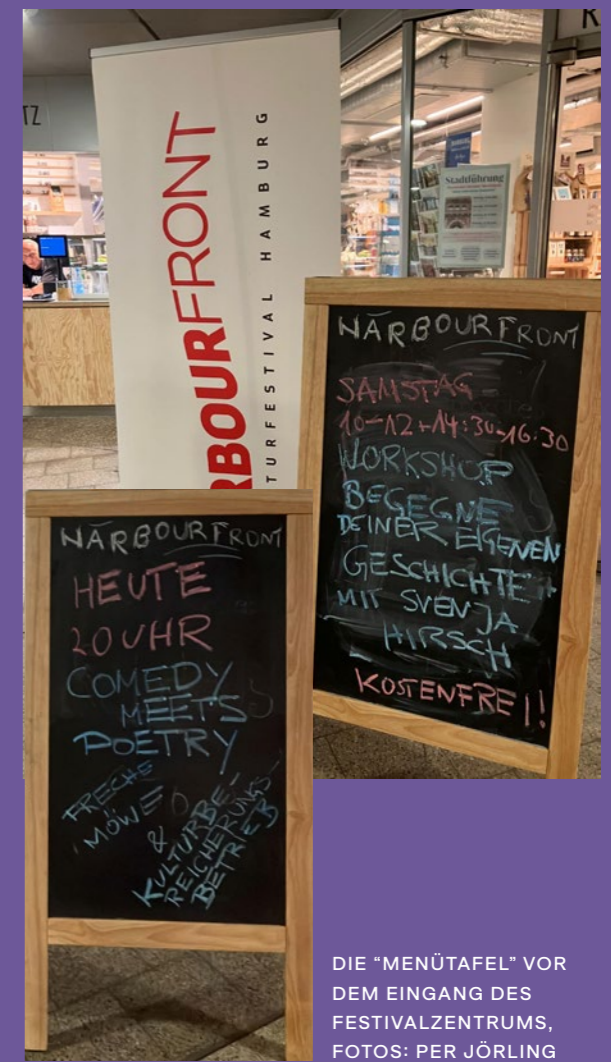 TZ
R
RBOURFRONT
TURFESTIVAL HAMBURG
Stadtführung
HARBOURFRONT
SAMSTAG
10-12+14:30-16:30
WORKSHOP
BEGEGNE
DEINER EIGENEN
GESCHICHTE
MIT SVENJA
HIRSCH
KOSTENFREI!
HARBOURFRONT
HEUTE
20 UHR
COMEDY
MEETS
POETRY
FRECHE
MÖWE
&
KULTURBE-
REICHERUNGS-
BETRIEB
DIE “MENÜTAFEL” VOR
DEM EINGANG DES
FESTIVALZENTRUMS,
FOTOS: PER JÖRLING